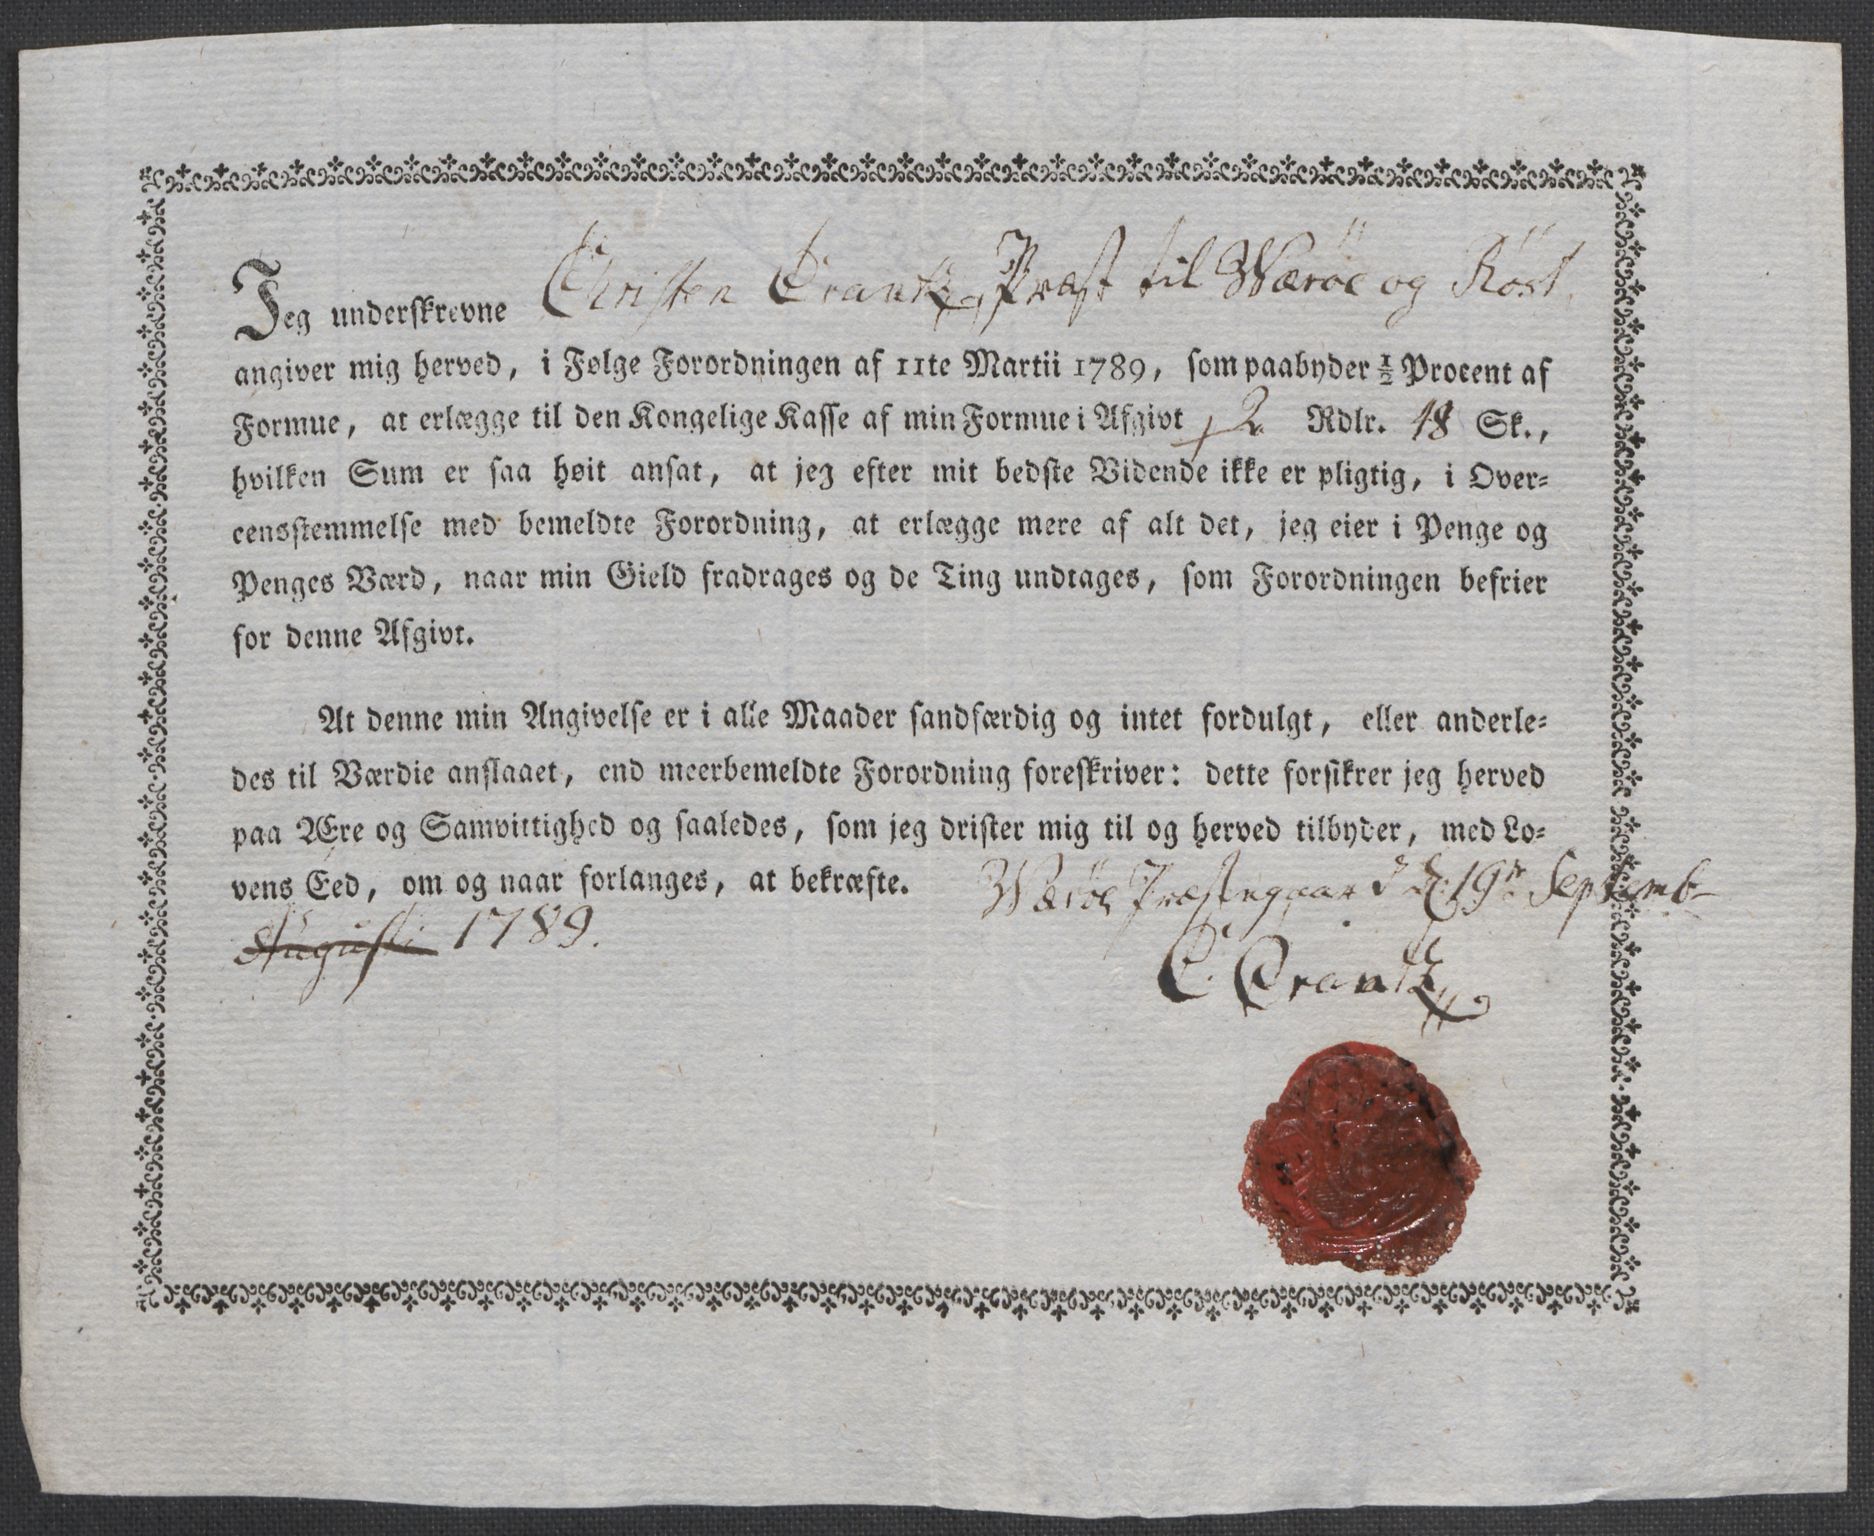 Jeg underskrevne Christen Crantz, Præst til Wæröe og Röst,
angiver mig herved, i Følge Forordningen af 11te Martii 1789, som paabyder ½ Procent af
Formue, at erlægge til den Kongelige Kasse af min Formue i Afgivt 2 Rdlr. 48 Sk.,
hvilken Sum er saa høit ansat, at jeg efter mit bedste Vidende ikke er pligtig, i Over-
eensstemmelse med bemeldte Forordning, at erlægge mere af alt det, jeg eier i Penge og
Penges Værd, naar min Gield fradrages og de Ting undtages, som Forordningen befrier
for denne Afgivt.
At denne min Angivelse er i alle Maader sandfærdig og intet fordulgt, eller anderle-
des til Værdie anslaaet, end meerbemeldte Forordning foreskriver: dette forsikrer jeg herved
paa Ære og Samvittighed og saaledes, som jeg drister mig til og herved tilbyder, med Lo-
vens Eed, om og naar forlanges, at bekræfte. Wæröe Præstegaard d. 19de Septemb-
Augusti 1789.
C. Crantz